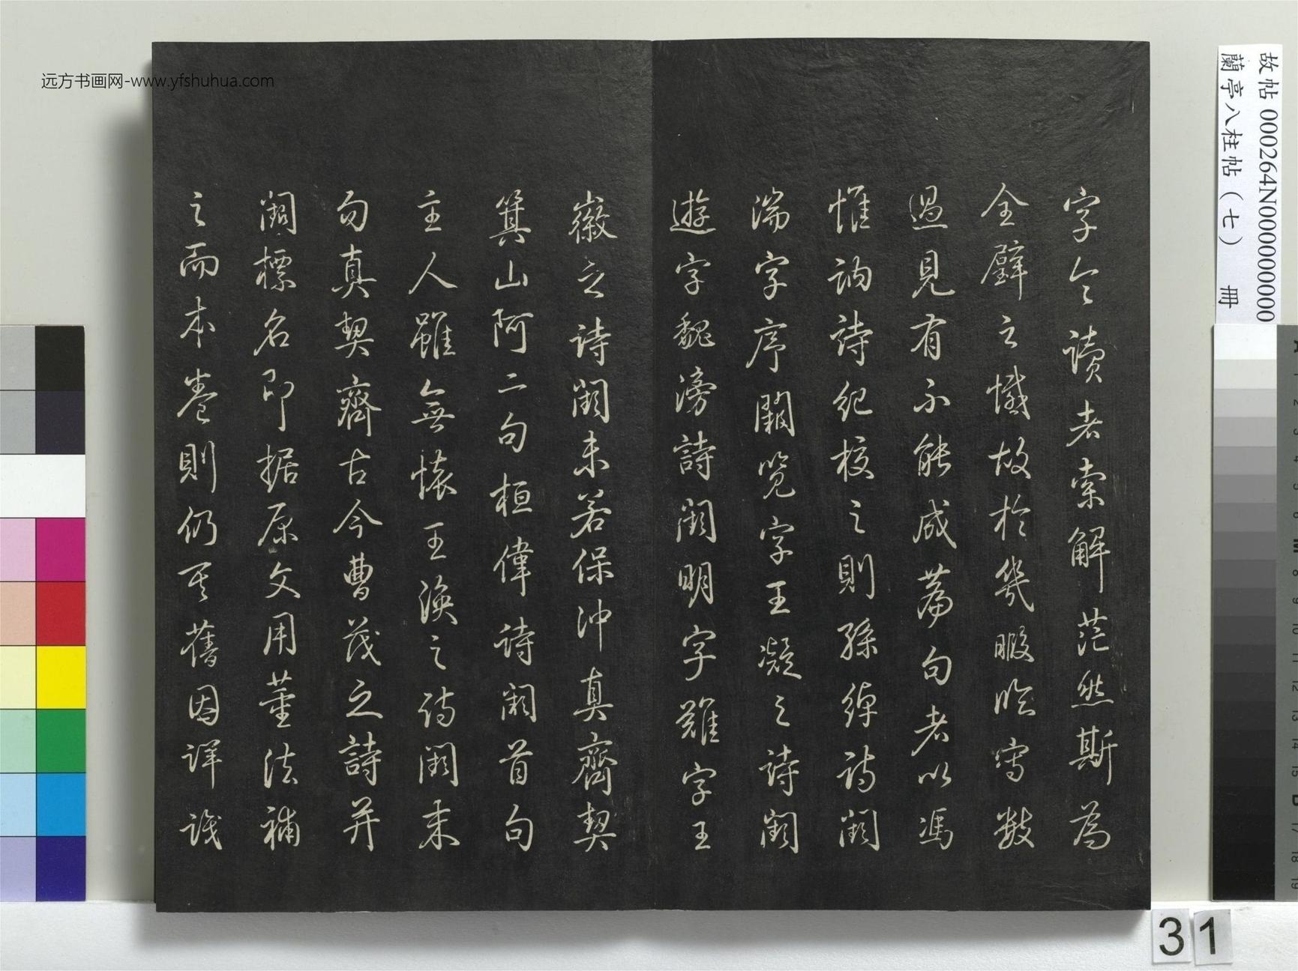 字令讀者索解茫然斯為
全璧之憾故於幾暇臨寫數
過見有不能成篇句者以馮
惟訥詩紀校之則孫綽詩闕
湍字序闕覽字王凝之詩闕
遊字魏滂詩闕明字難字王
徽之詩闕末若保沖真齊契
箕山阿二句桓偉詩闕首句
主人雖無懷王渙之詩闕末
句真契齊古今曹茂之詩并
闕標名即據原文用董法補
之而本卷則仍其舊因詳識
故帖 000264N000000000
蘭亭八柱帖（七） 冊
远方书画网-www.yfshuhua.com
31